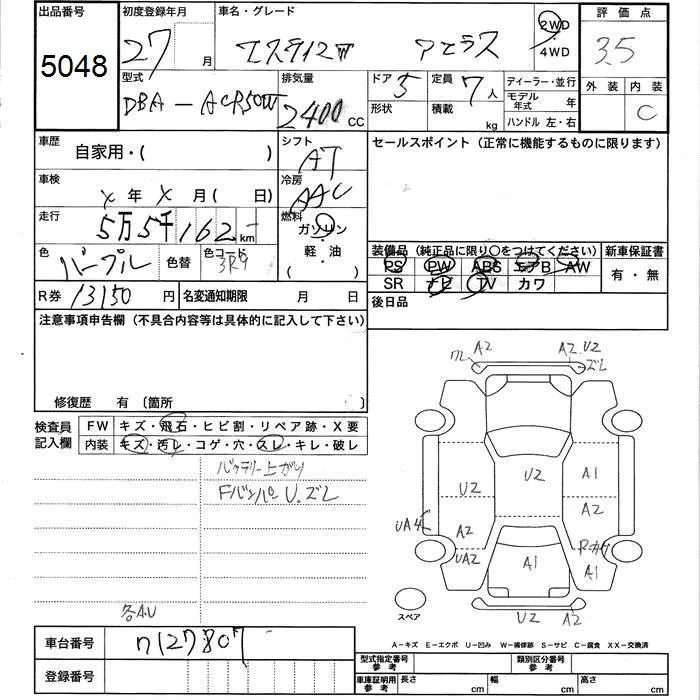 出品番号
5048
初度登録年月
27 月
車名・グレード
エスティマ アエラス
2WD
・
4WD
評価点
3.5
外装 内装
C
型式
DBA-ACR50W
排気量
2400 CC
ドア 5
形状
定員 7 人
積載 kg
ディーラー・並行
モデル年式 年
ハンドル 左・右
車歴
自家用・( )
シフト
AT
セールスポイント (正常に機能するものに限ります)
車検
X 年 X 月 ( 日)
冷房
AAC
走行
5万5千162 km
燃料
ガソリン
・
軽・油
( )
色
パープル
色替
色コード
3R9
装備品 (純正品に限り○をつけてください)
PS PW ABS エアB AW
SR ナビ TV カワ
新車保証書
有・無
R券 13150 円
名変通知期限 月 日
後日品
注意事項申告欄 (不具合内容等は具体的に記入して下さい)
修復歴 有 〔箇所 〕
検査員
記入欄
FW キズ・飛石・ヒビ割・リペア跡・X要
内装 キズ・汚レ・コゲ・穴・スレ・キレ・破レ
バッテリー上がり
Fバンパー U.ズレ
各A.U
ワレ A2
A2.U2
ズレ
U2
U2
A1
A2
UA4
A2
UA2
A1
A1
U2
A2
スペア
A-キズ E-エクボ U-凹み W-補修跡 S-サビ C-腐食 XX-交換済
車台番号
7127807
登録番号
型式指定番号
参考
類別区分番号
参考
車庫証明用
参考
長さ cm
幅 cm
高さ cm